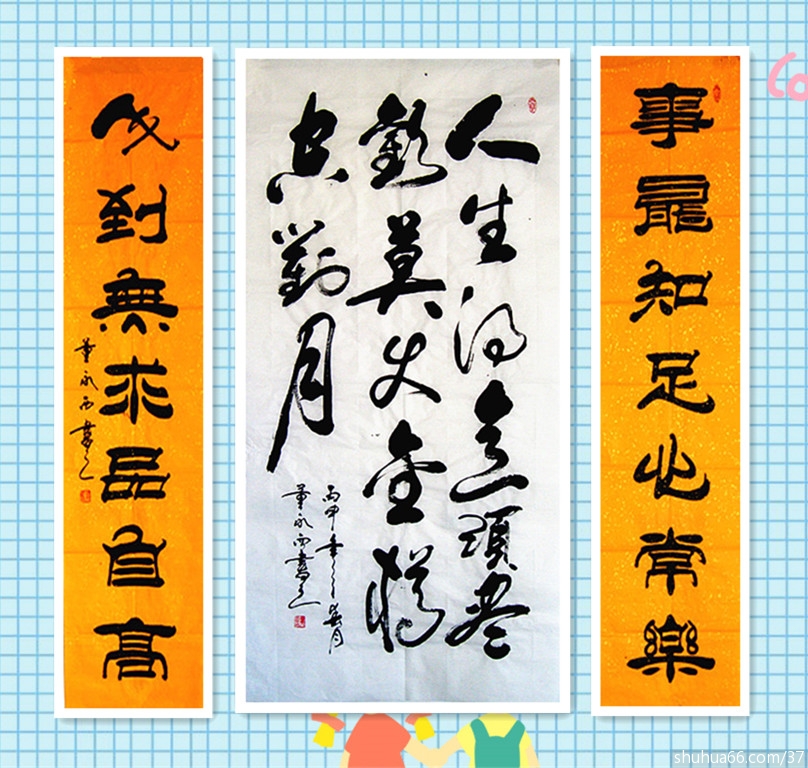 事能知足心常樂
人生得意須盡
歡莫使金樽
空對月
丙申年
董永西書之
人到無求品自高
董永西書之
Co
shuhua66.com/37